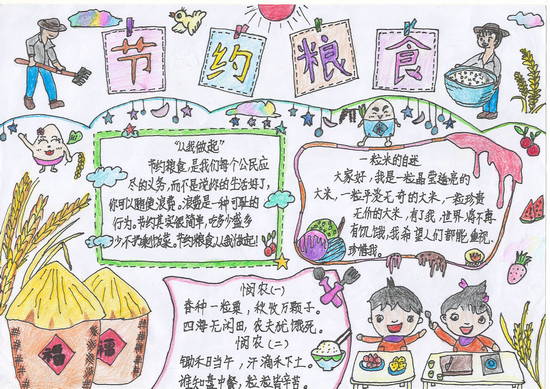 节约粮食
"从我做起"
节约粮食,是我们每个公民应
尽的义务,而不是说你的生活好了,
你可以随便浪费。浪费是一种可耻的
行为。节约其实很简单,吃多少盛多
少,不剩饭菜。节约粮食从我做起!
一粒米的自述
大家好,我是一粒晶莹透亮的
大米,一粒平淡无奇的大米,一粒珍贵
无价的大米,有了我,世界将不再
有饥饿,我希望人们都能重视、
珍惜我。
悯农(一)
春种一粒粟,秋收万颗子。
四海无闲田,农夫犹饿死。
悯农(二)
锄禾日当午,汗滴禾下土。
谁知盘中餐,粒粒皆辛苦。
福
福